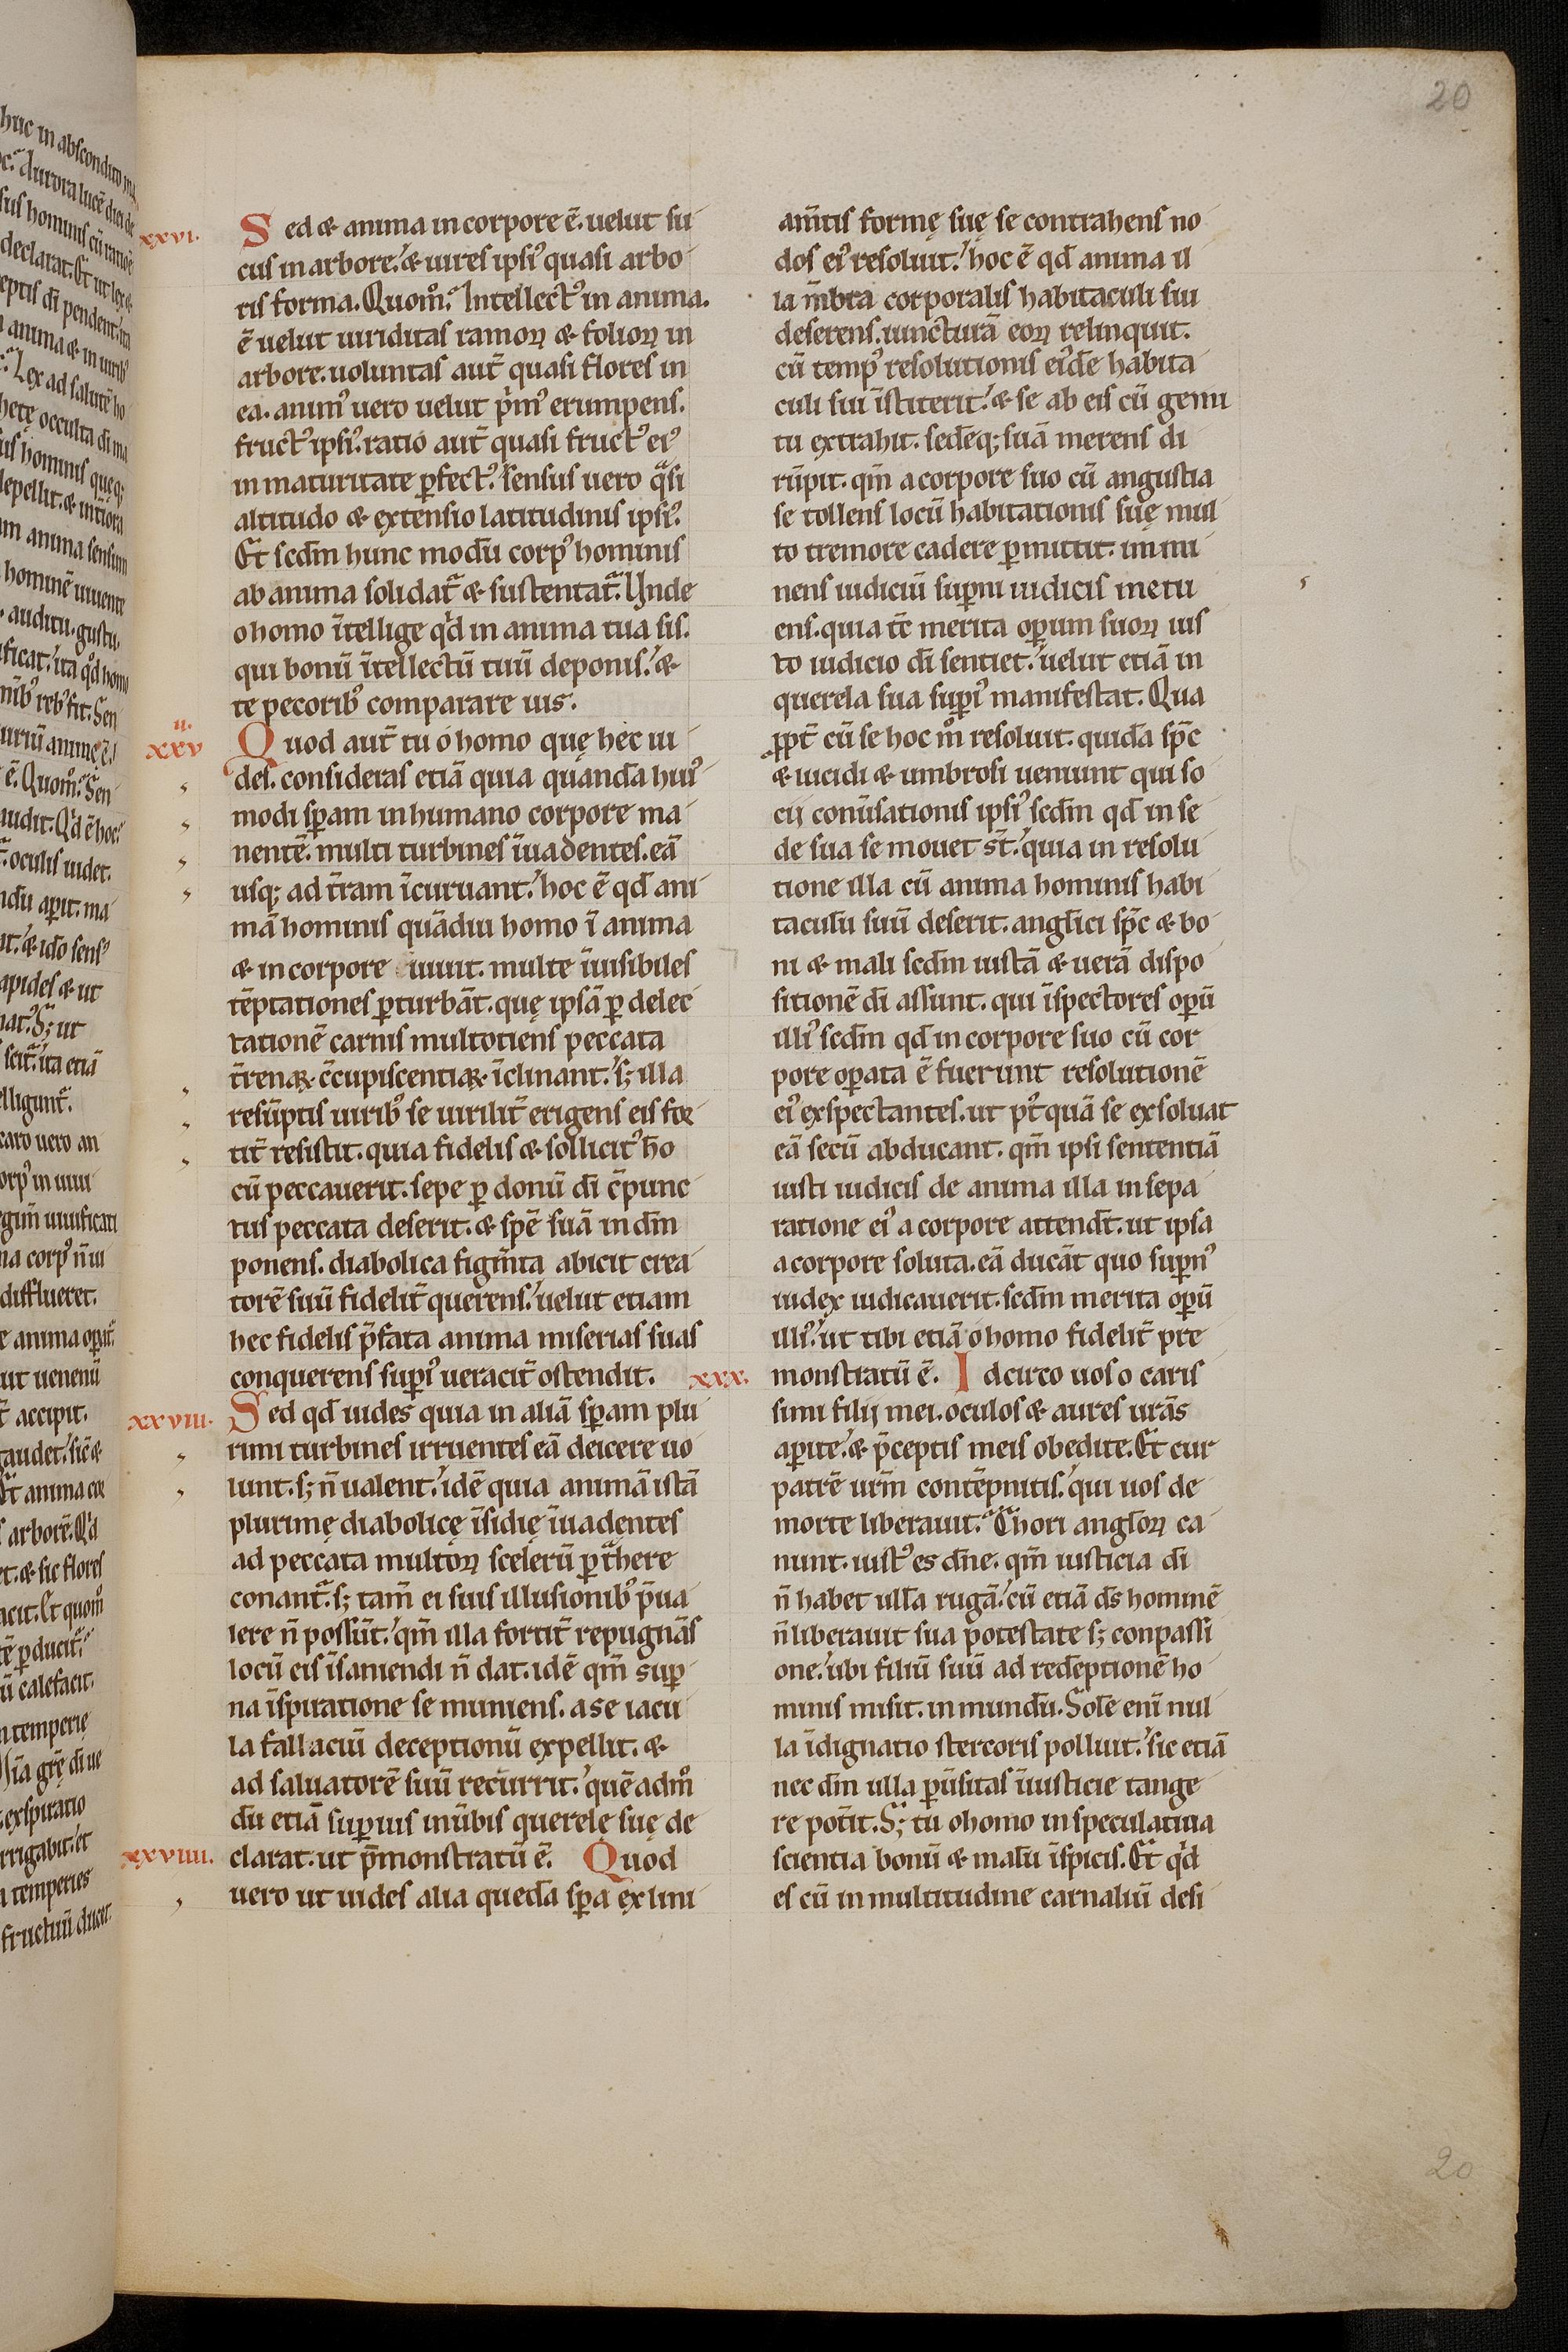 20
xxvi.
Sed & anima in corpore ē. uelut su
cus in arbore. & uires ipsi᷒ quasi arbo
ris forma. Quom̊. Intellect᷒ in anima.
ē uelut uiriditas ramoꝝ & folioꝝ in
arbore. uoluntas aut̄ quasi flores in
ea. anim᷒ uero uelut p̓m᷒ erumpens.
fruct᷒ ipsi᷒. ratio aut̄ quasi fruct᷒ ei᷒
in maturitate ꝑfect᷒. sensus uero qᷓsi
altitudo & extensio latitudinis ipsi᷒.
Et scd̄m hunc modū corp᷒ hominis
ab anima solidat᷑ & sustentat᷑. Unde
o homo ītellige qd̓ in anima tua sis.
qui bonū ītellectū tuū deponis. &
te pecorib᷒ comparare uis.
ii.
xxv
Quod aut̄ tu o homo quę hec ui
des. consideras etiā quia quandā hui᷒
modi sꝑam in humano corpore ma
nentē. multi turbines īuadentes. eā
usq; ad t̄ram īcuruant. hoc ē qd̄ ani
mā hominis quādiu homo ī anima
& in corpore uiuit. multe īuisibiles
tēptationes ꝑturbāt. quę ipsā ꝑ delec
tationē carnis multotiens peccata
t̄renaꝝ c̄cupiscentiaꝝ īclinant. s; illa
resūptis uirib᷒ se uirilit̄ erigens eis for
tit̄ resistit. quia fidelis & sollicit᷒ hō
cū peccauerit. sepe ꝑ donū dī c̄punc
tus peccata deserit. & spē suā in dm̄
ponens. diabolica figm̄ta abicit crea
torē suū fidelit̄ querens. uelut etiam
hec fidelis p̄fata anima miserias suas
conquerens suꝑi᷒ ueracit̄ ostendit.
xxviii.
Sed qd̄ uides quia in aliā sꝑam plu
rimi turbines irruentes eā deicere uo
lunt. s; n̄ ualent. idē quia animā istā
plurimę diabolicę īsidię īuadentes
ad peccata multoꝝ scelerū ꝑtᷓhere
conant᷑. s; tam̄ ei suis illusionib᷒ p̄ua
lere n̄ possūt. qm̄ illa fortit̄ repugnās
locū eis īsaniendi n̄ dat. idē qm̄ suꝑ
na īspiratione se muniens. a se iacu
la fallaciū deceptionū expellit. &
ad saluatorē suū recurrit. quē adm̊
dū etiā suꝑius in ūbis querelę suę de
xxviiii.
clarat. ut p̄monstratū ē. Quod
uero ut uides alia quedā sꝑa ex lini
am̄tis formę suę se contrahens no
dos ei᷒ resoluit. hoc ē qd̄ anima il
la m̄bra corporalis habitaculi sui
deserens. iuncturā eoꝝ relinquit.
cū temp᷒ resolutionis ei᷒dē habita
culi sui īstiterit. & se ab eis cū gemi
tu extrahit. sedēq; suā merens di
rūpit. qm̄ a corpore suo cū angustia
se tollens locū habitationis suę mul
to tremore cadere ꝑmittit. immi
nens iudiciū suꝑni iudicis metu
ens. quia tc̄ merita oꝑum suoꝝ ius
to iudicio dī sentiet. uelut etiā in
querela sua suꝑi᷒ manifestat. Qua
ꝓpt̄ cū se hoc m̊ resoluit. quidā sp̄c
& lucidi & umbrosi ueniunt qui so
cij conūsationis ipsi᷒ scd̄m qd̄ in se
de sua se mouet st̄. quia in resolu
tione illa cū anima hominis habi
taculū suū deserit. anglici sp̄c & bo
ni & mali scd̄m iustā & uerā dispo
sitionē dī assunt. qui īspectores oꝑū
illi᷒ scd̄m qd̄ in corpore suo cū cor
pore oꝑata ē fuerunt resolutionē
ei᷒ exspectantes. ut pt̄quā se exsoluat
eā secū abducant. qm̄ ipsi sententiā
iusti iudicis de anima illa in sepa
ratione ei᷒ a corpore attendt̄. ut ipsa
a corpore soluta. eā ducāt quo suꝑn᷒
iudex iudicauerit. scd̄m merita oꝑū
illi᷒. ut tibi etiā o homo fidelit̄ pre
xxx.
monstratū ē. Idcirco uos o caris
simi filij mei. oculos & aures urās
aꝑite. & p̄ceptis meis obedite. Et cur
patrē urm̄ contēpnitis. qui uos de
morte liberauit. Chori angl̄oꝝ ca
nunt. iust᷒ es dn̄e. qm̄ iusticia dī
n̄ habet ullā rugā. cū etiā ds̄ hominē
n̄ liberauit sua potestate s; conpassi
one. ubi filiū suū ad redēptionē ho
minis misit. in mundū. Solē enī nul
la īdignatio stercoris polluit. sic etiā
nec dm̄ ulla pūsitas īiusticie tange
re potit̄. S; tu o homo in speculatiua
scientia bonū & malū īspicis. Et qd̓
es cū in multitudine carnaliū desi
20